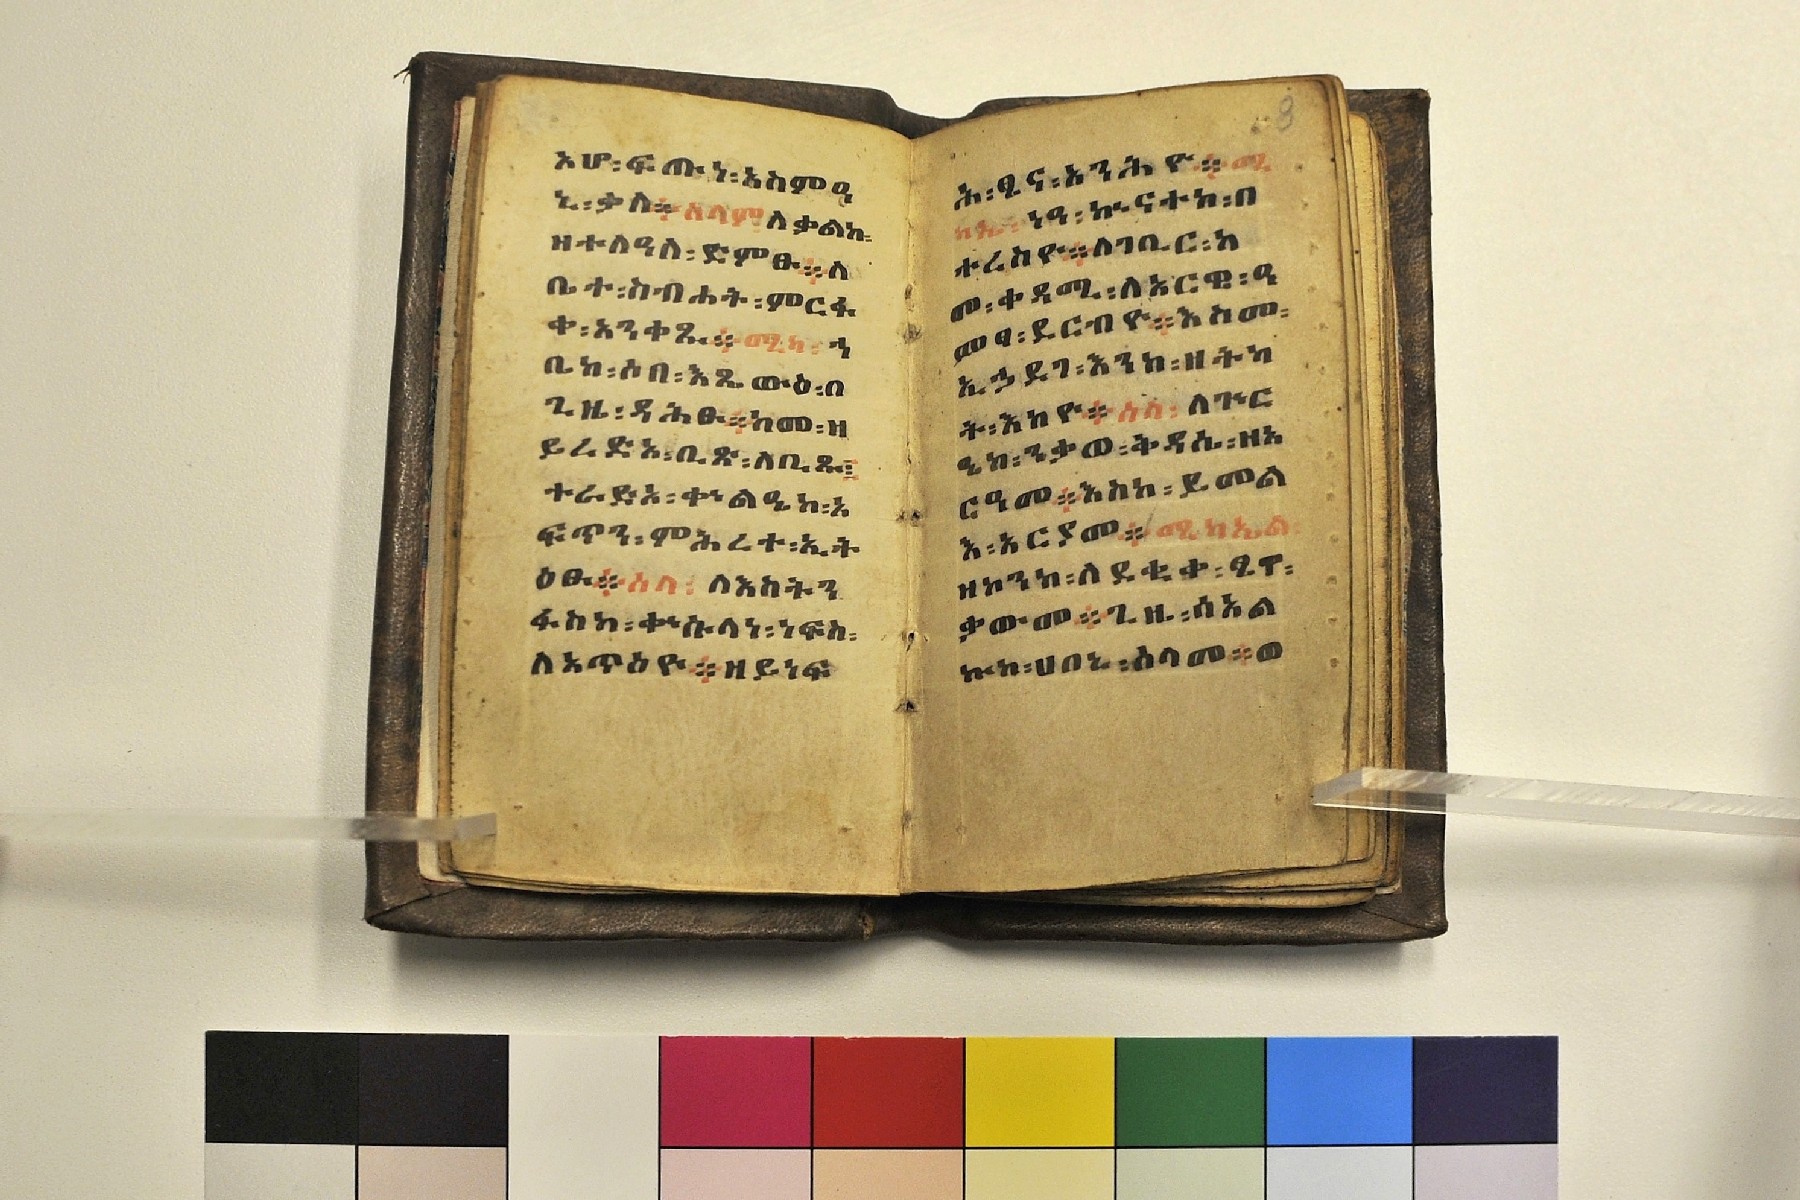 አሆ፡ፍጡነ፡እስምዒ
ኒ፡ቃለ።ሰላም፡ለቃልከ፡
ዘተለዓለ፡ድምፁ።ለ
ቤተ፡ስብሐት፡ምርፋ
ቀ፡አንቀጹ።ሚካ፡ኀ
ቤከ፡ሶበ፡እጼውዕ፡በ
ጊዜ፡ዳሕፁ።ከመ፡ዘ
ይረድእ፡ቢጽ፡ለቢጹ፡
ተራድአ፡ቀኁልዔከ፡አ
ፍጥን፡ምሕረተ፡ኢት
ዕፁ።ሰላ፡ለእስትን
ፋስከ፡ቀኁስላነ፡ነፍስ፡
ለአጥዕዮ።ዘይነፍ
ሕ፡ዒና፡አንሕዮ።ሚ
ካኤ፡ነዓ፡ኵናተከ፡በ
ተረስዮ።ለገቢር፡ከ
መ፡ቀዳሚ፡ለአርዌ፡ዓ
መፃ፡ደርብዮ።እስመ፡
ኢኃደገ፡እንከ፡ዘትካ
ት፡እከዮ።ሰላ፡ለጕር
ዔከ፡ንቃወ፡ቅዳሴ፡ዘአ
ርዓመ።እስከ፡ይመል
እ፡አርያመ።ሚካኤል፡
ዘከንከ፡ለደቂቀ፡ዒዋ፡
ቃውመ።ጊዜ፡ሰአል
ኩከ፡ሀበኒ፡ሰላመ።ወ
8